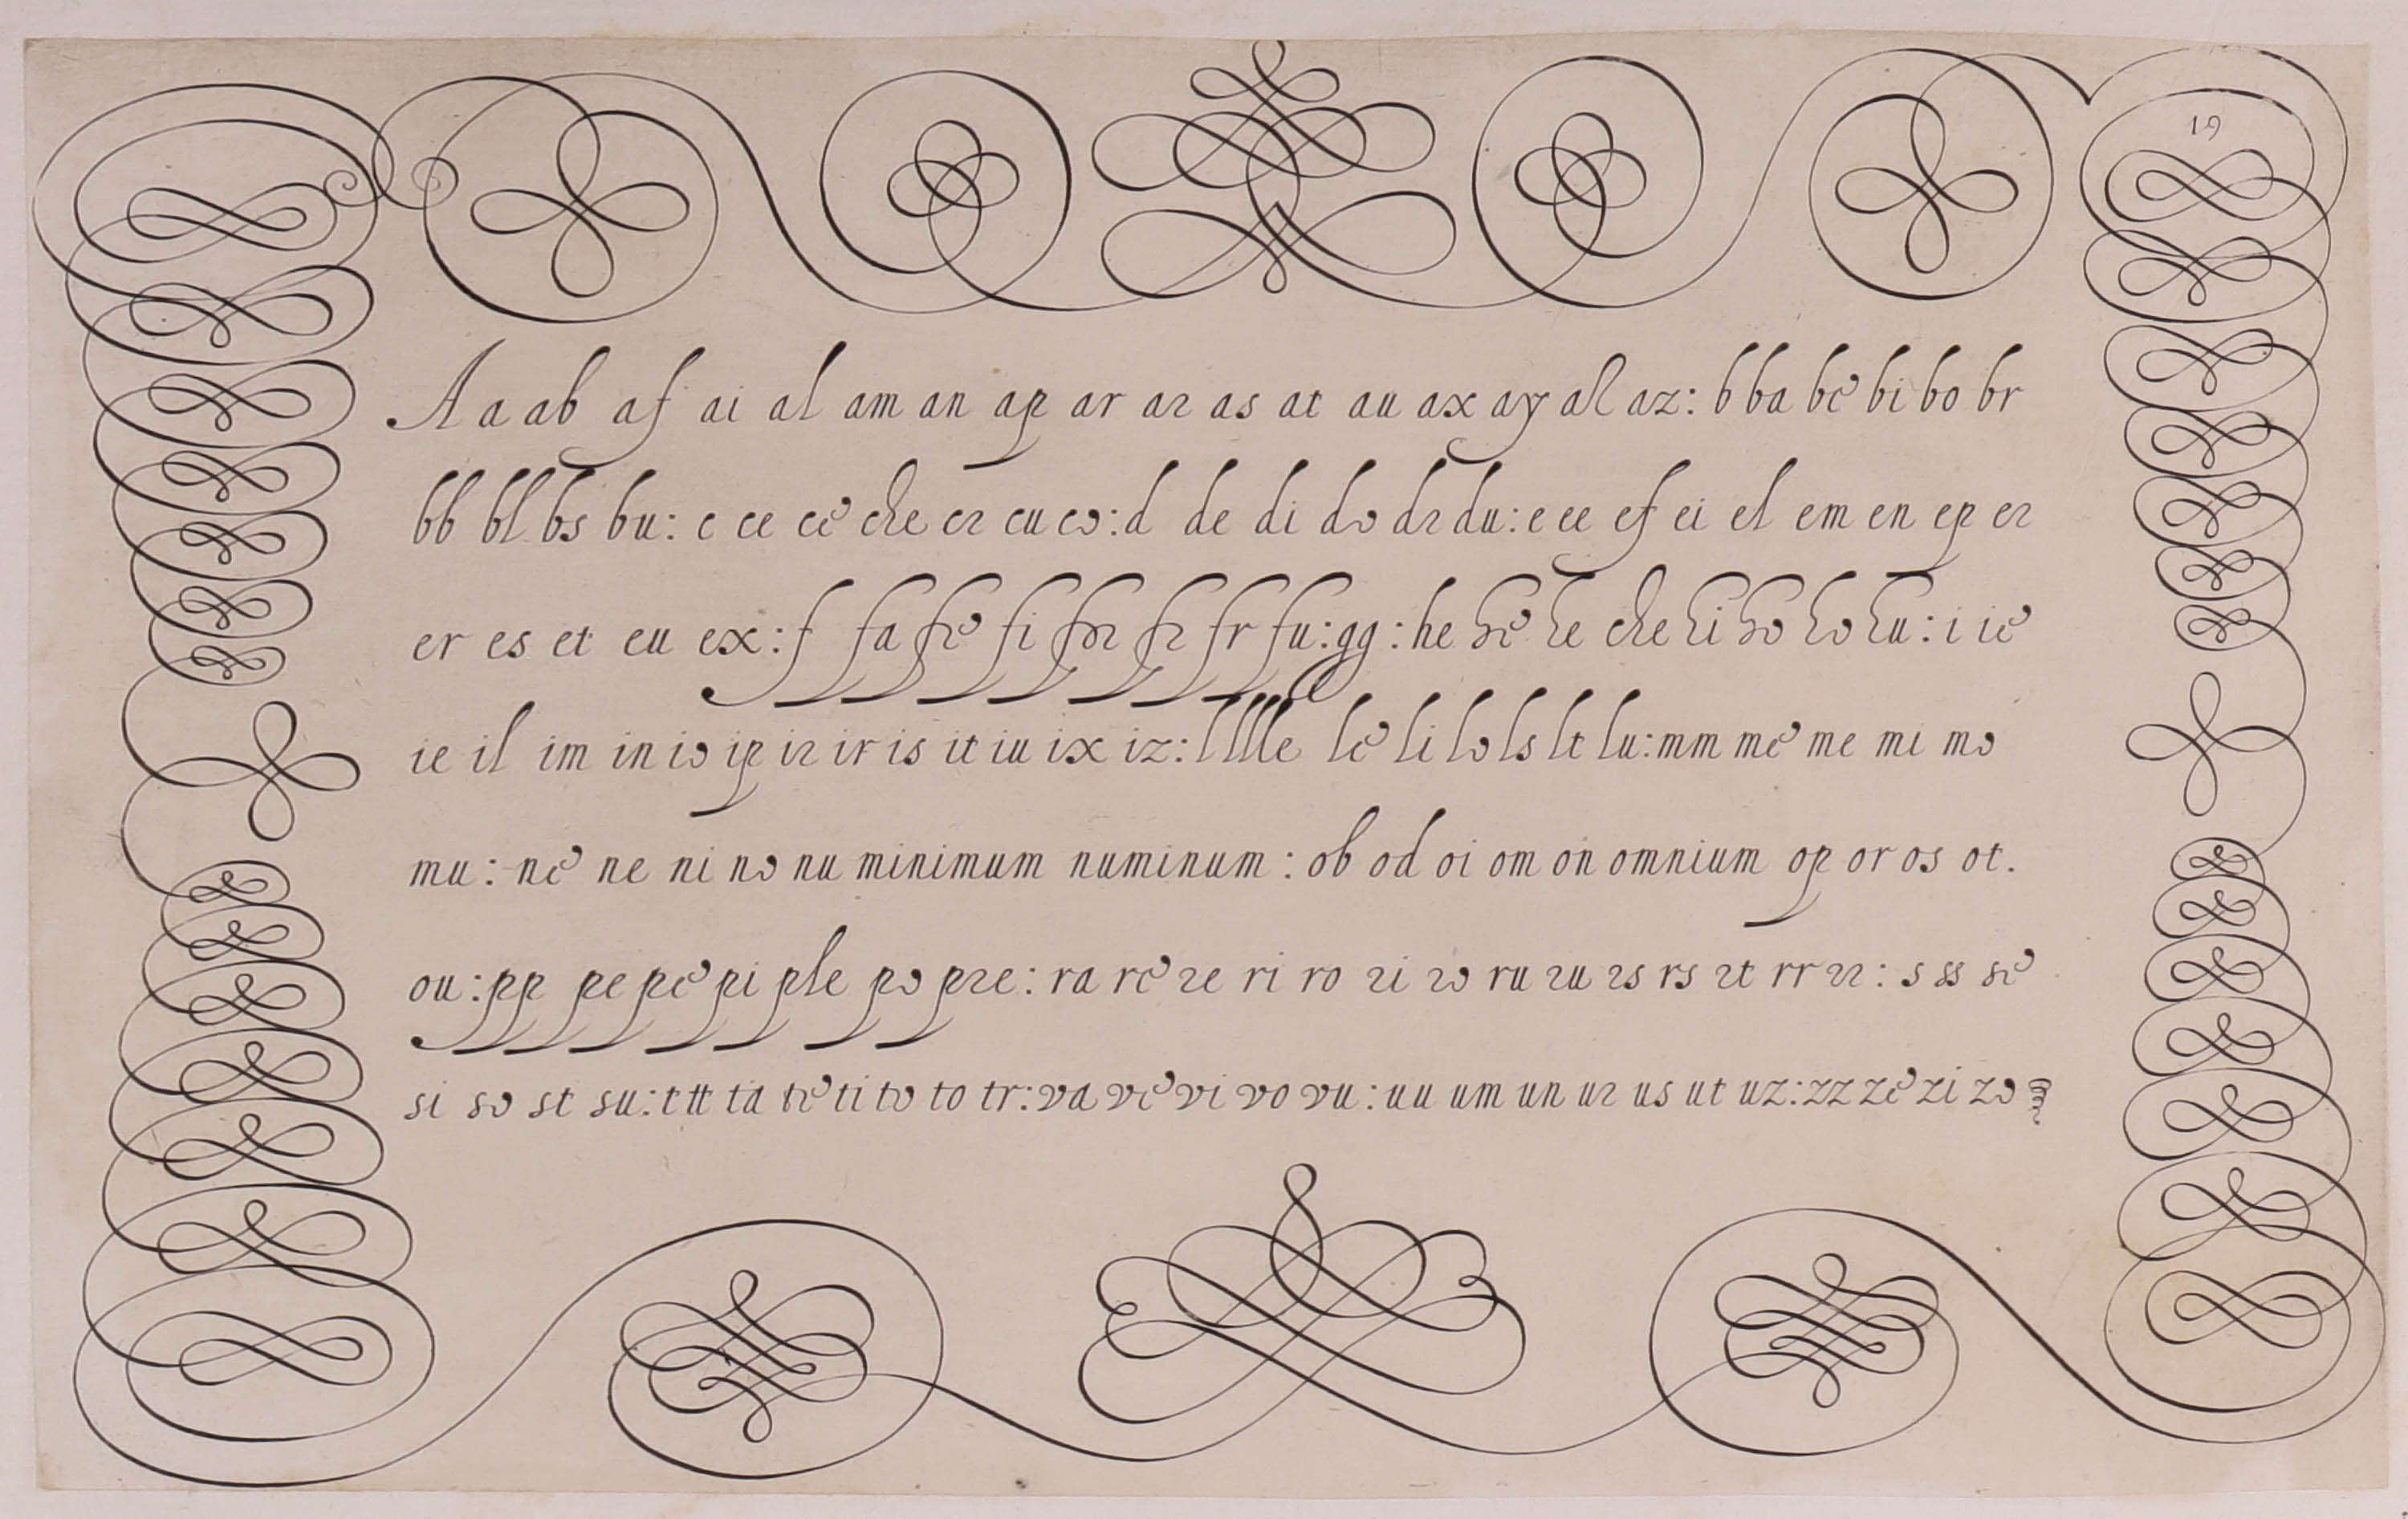 19
A a ab af ai al am an ap ar aꝛ as at au ax ay al az: b ba be bi bo br
bb bl bs bu: c ce ce che cꝛ cu co: d de di do dꝛ du: e ee ef ei el em en ep eꝛ
er es et eu ex: f fa fe fi foꝛ fꝛ fr fu: gg: he he he che hi ho ho hu: i ie
ie il im in io ip iꝛ ir is it iu ix iz: l l l le le li lo ls lt lu: mm me me mi mo
mu: ne ne ni no nu minimum numinum: ob od oi om on omnium op or os ot.
ou: pp pe pe pi ple po pꝛe: ra re ꝛe ri ro ꝛi ꝛo ru ꝛu ꝛs rs ꝛt rr ꝛꝛ: s ss se
si so st su: t tt ta te ti to to tr: va ve vi vo vu: uu um un uꝛ us ut uz: zz ze zi zo